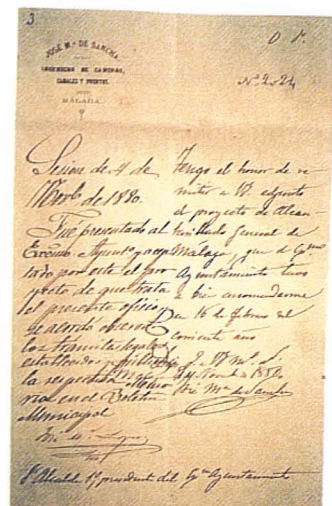 3
JOSÉ Mª DE SANCHA
INGENIERO DE CAMINOS,
CANALES Y PUERTOS.
MÁLAGA
Nº 2024
Sesion de 4 de
de 1880.
Fué presentado al
Excmo. Ayuntº y acep
tado por este el pro
yecto de que trata
el presente oficio,
se acordó
los trámites legales
establecidos
la respectiva
ria en el Boletin
Municipal
Tengo el honor de re
mitir a V. adjunto
el proyecto de Alcan
tarillado General de
Málaga, que el Exmo
Ayuntamiento tuvo
a bien encomendarme
en 16 de febrero del
corriente año
José Mª de Sancha
Sr Alcalde 1º presidente del Exmo Ayuntamiento